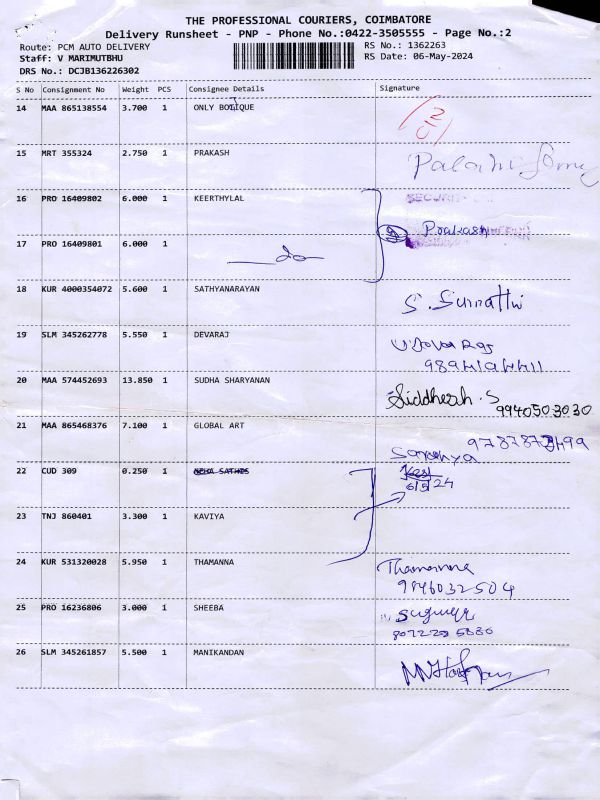 THE PROFESSIONAL COURIERS, COIMBATORE
Delivery Runsheet - PNP - Phone No.:0422-3505555 - Page No.:2
Route: PCM AUTO DELIVERY
RS No.: 1362263
Staff: V MARIMUTBHU
RS Date: 06-May-2024
DRS No.: DCJB136226302
S No Consignment No Weight PCS Consignee Details Signature
14 MAA 865138554 3.700 1 ONLY BOTIQUE
15 MRT 355324 2.750 1 PRAKASH
16 PRO 16409802 6.000 1 KEERTHYLAL
SECURITY
Prakash
17 PRO 16409801 6.000 1
do
18 KUR 4000354072 5.600 1 SATHYANARAYAN
19 SLM 345262778 5.550 1 DEVARAJ
20 MAA 574452693 13.850 1 SUDHA SHARYANAN
Siddhesh.S
9940503030
21 MAA 865468376 7.100 1 GLOBAL ART
22 CUD 309 0.250 1
6/5/24
23 TNJ 860401 3.300 1 KAVIYA
24 KUR 531320028 5.950 1 THAMANNA
Thamanna
25 PRO 16236806 3.000 1 SHEEBA
26 SLM 345261857 5.500 1 MANIKANDAN